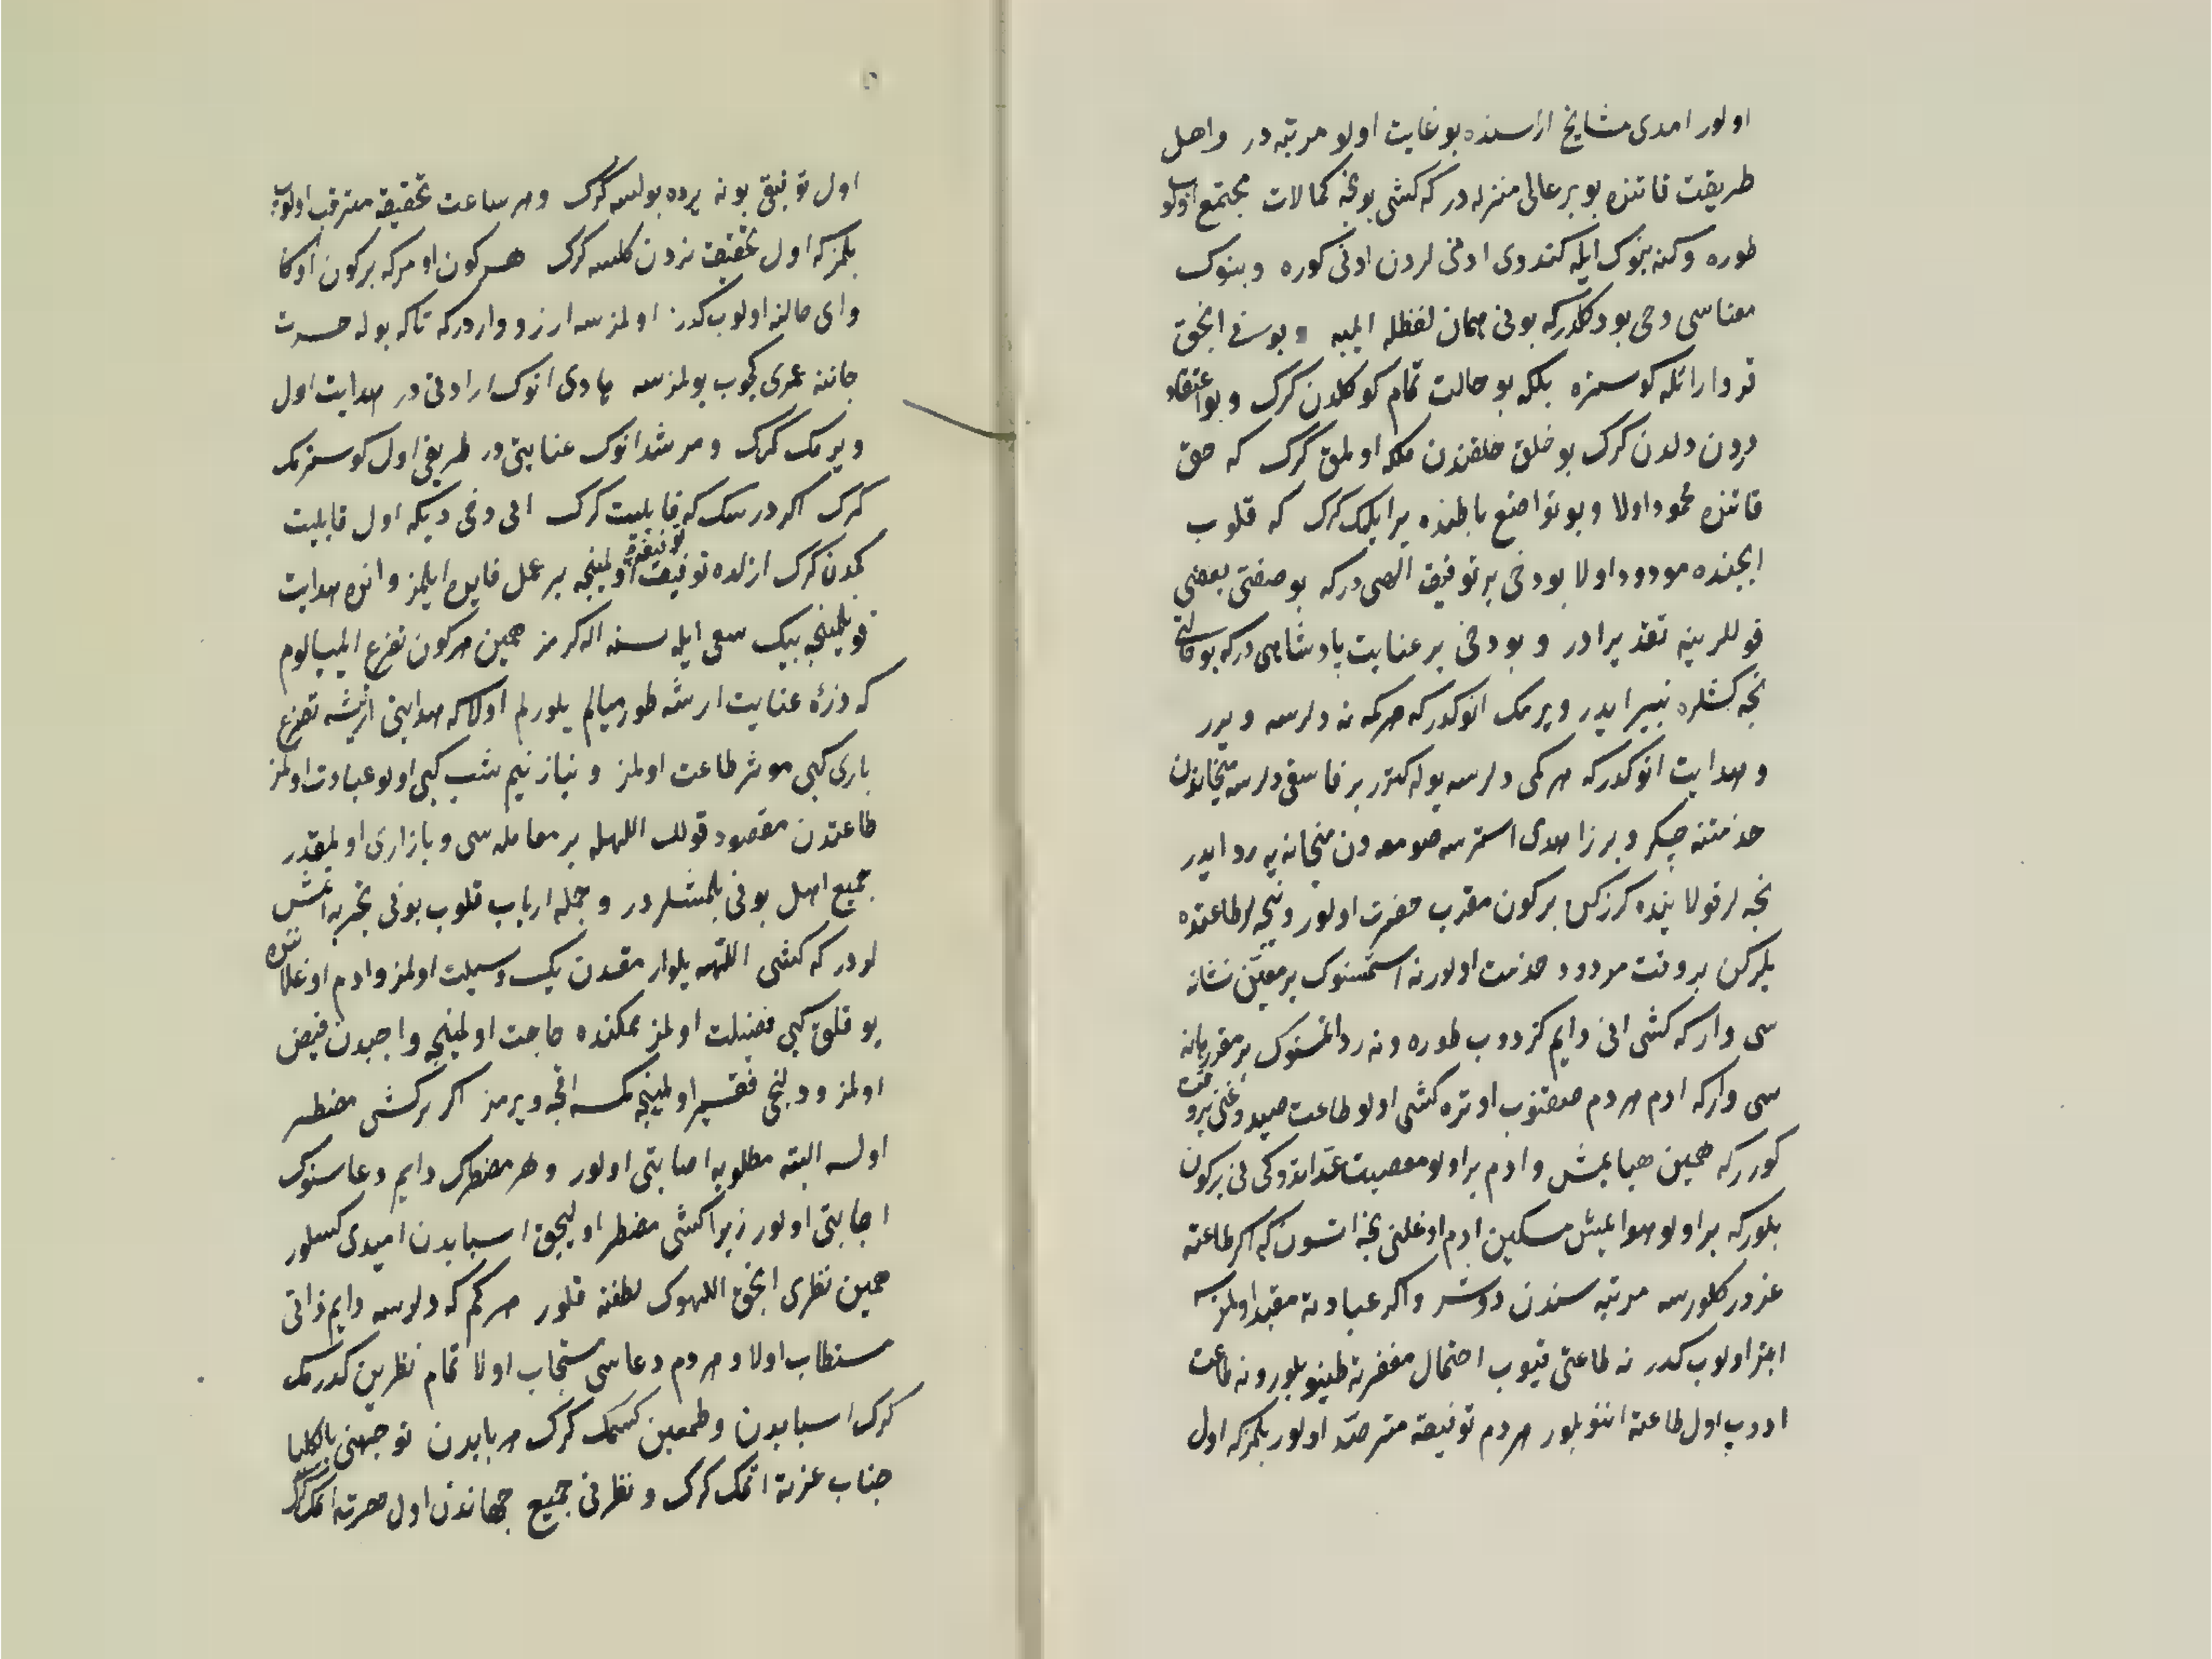 اولور امدی مشایخ اراسنده بو غایت اولو مرتبه در واهل
طریقت قاتنده بو بر عالی منزله در که کشی بونجه کمالات مجتمع اولوب
طوره وکنه بنوک ایله کندوی ادنی لردن ادنی کوره وبنوک
معناسی دخی بو دکلدرکه بونی همان لفظله ایلیه وبوسنی انجق
تر وار انکله کوستره بلکه بو حالت تمام کوکلدن کرک وبو اعتقاد
درون دلدن کرک بو خلق خلقندن ملکه اولمق کرک که حق
قاتنده محمود اولا وبو تواضع باطنده بر ایلیک کرک که قلوب
ایچنده مودود اولا بو دخی بر توفیق الهی درکه بو صفتی بعضی
قوللرینه تقدیر ادر وبو دخی بر عنایت پادشاهی درکه بو حالتی
نجه کشلره نبیر ایدر ویرمک انوکدرکه هرکمه نه دلرسه ویرر
وهدایت انوکدرکه هرکمی دلرسه یوله کترر بر فاسقی دلرسه میخانه‌دن
خدمتنه چکر وبر زاهدی استرسه صومعه‌دن میخانه‌یه رد ایدر
نجه لر قولاینده کزرکن بر کون مقرب حضرت اولور ونیجه لر طاعتده
یلرکن بر وقت مردود خدمت اولور نه استمسنوک بر معین نشانه
سی وار که کشی انی دایم کزدوب طوره ونه رد اتمسنوک بر مقرر بهانه
سی وارکه ادم هردم صقنوب اوتره کشی اولو طاعت صیدوغنی بر وقت
کوررکه همین هبا ایمش وادم بر اولو معصیت عد اتدوکی نی بر کون
بلورکه بر اولو هوا ایمش مسکین ادم اوغلنی نجه اتسون که اکر طاعته
غرور کلورسه مرتبه سندن دوشر واکر عبادته مقید اولمزسه
ابتر اولوب کدر نه طاعتی قیوب احتمال مغفرته طینو بلور ونه طاعت
ادوب اول طاعته اننو بلور هردم توفیقه مترصد اولور بلمزکه اول
اول توفیق بونه یرده بولسه کرک وهر ساعت تحقیقه مترقب اولوب
بلمزکه اول تحقیق نردن کلسه کرک هر کون اومرکه بر کون اوکا
وای حالنه اولوب کدرز اولمزسه ارزو واردرکه تاکه بوله حسرت
جاننه عمری کچوب بولمزسه هادی انوک ارادتی در هدایت اول
ویرمک کرک ومرشد انوک عنایتی در طریقی اول کوسترمک
کرک اکر درسک که قابلیت کرک انی دخی دیکه اول قابلیت
کمدن کرک ازلده توفیق اولمینجه بر عمل فایده ایلمز وانده هدایت
قویلمینجه بیک سعی ایله سنه اله کرمز همین هرکون تضرع ایلیالوم
که ذرهٔ عنایت ارشه طورمیالم یلورلم اولاکه هدایتی اریشه تضرع
باری کبی موثر طاعت اولمز ونیاز نیم شب کبی اولو عبادت اولمز
طاعتدن مقصود قولک اللهله بر معامله سی وبازاری اولمقدر
جمیع اهل بونی بلمشلردر وجمله ارباب قلوب بونی تجربه اتمش
لودر که کشی اللهه یلوارمقدن یک وسیلت اولمز وادم اوغلاننده
یوقلق کبی فضیلت اولمز ممکنده حاجت اولمینجه واجبدن فیض
اولمز ودلنجی فقیر اولمینجه کمسه اقچه ویرمز اکر بر کشی مضطر
اولسه البته مطلوبه اصابتی اولور وهر مضطرک دایم دعاسنوک
اجابتی اولور زیرا کشی مضطر اولیجق اسبابدن امیدی کسلور
همین نظری انجق اللهوک لطفنه قلور هرکم که دلرسه دایم ذاتی
مستطاب اولا وهردم دعاسی مستجاب اولا تمام نظرین کدرمک
کرک اسبابدن وطمعین کسمک کرک هر بابدن توجهنی بالکلیا
جناب عزته اتمک کرک ونظرنی جمیع جهاندن اول حضرته اتمک کرک